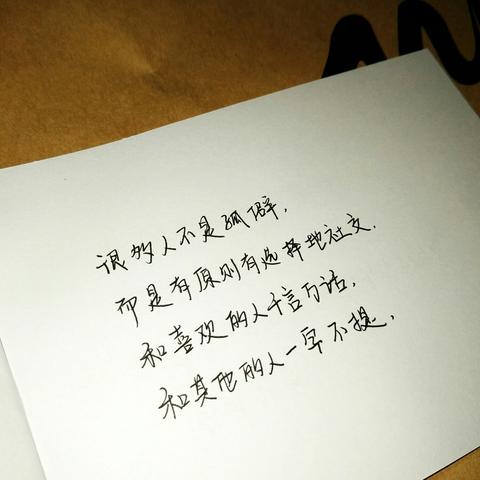 很多人不是孤僻,
而是有原则有选择地社交.
和喜欢的人千言万语,
和其他的人一字不提.
AN